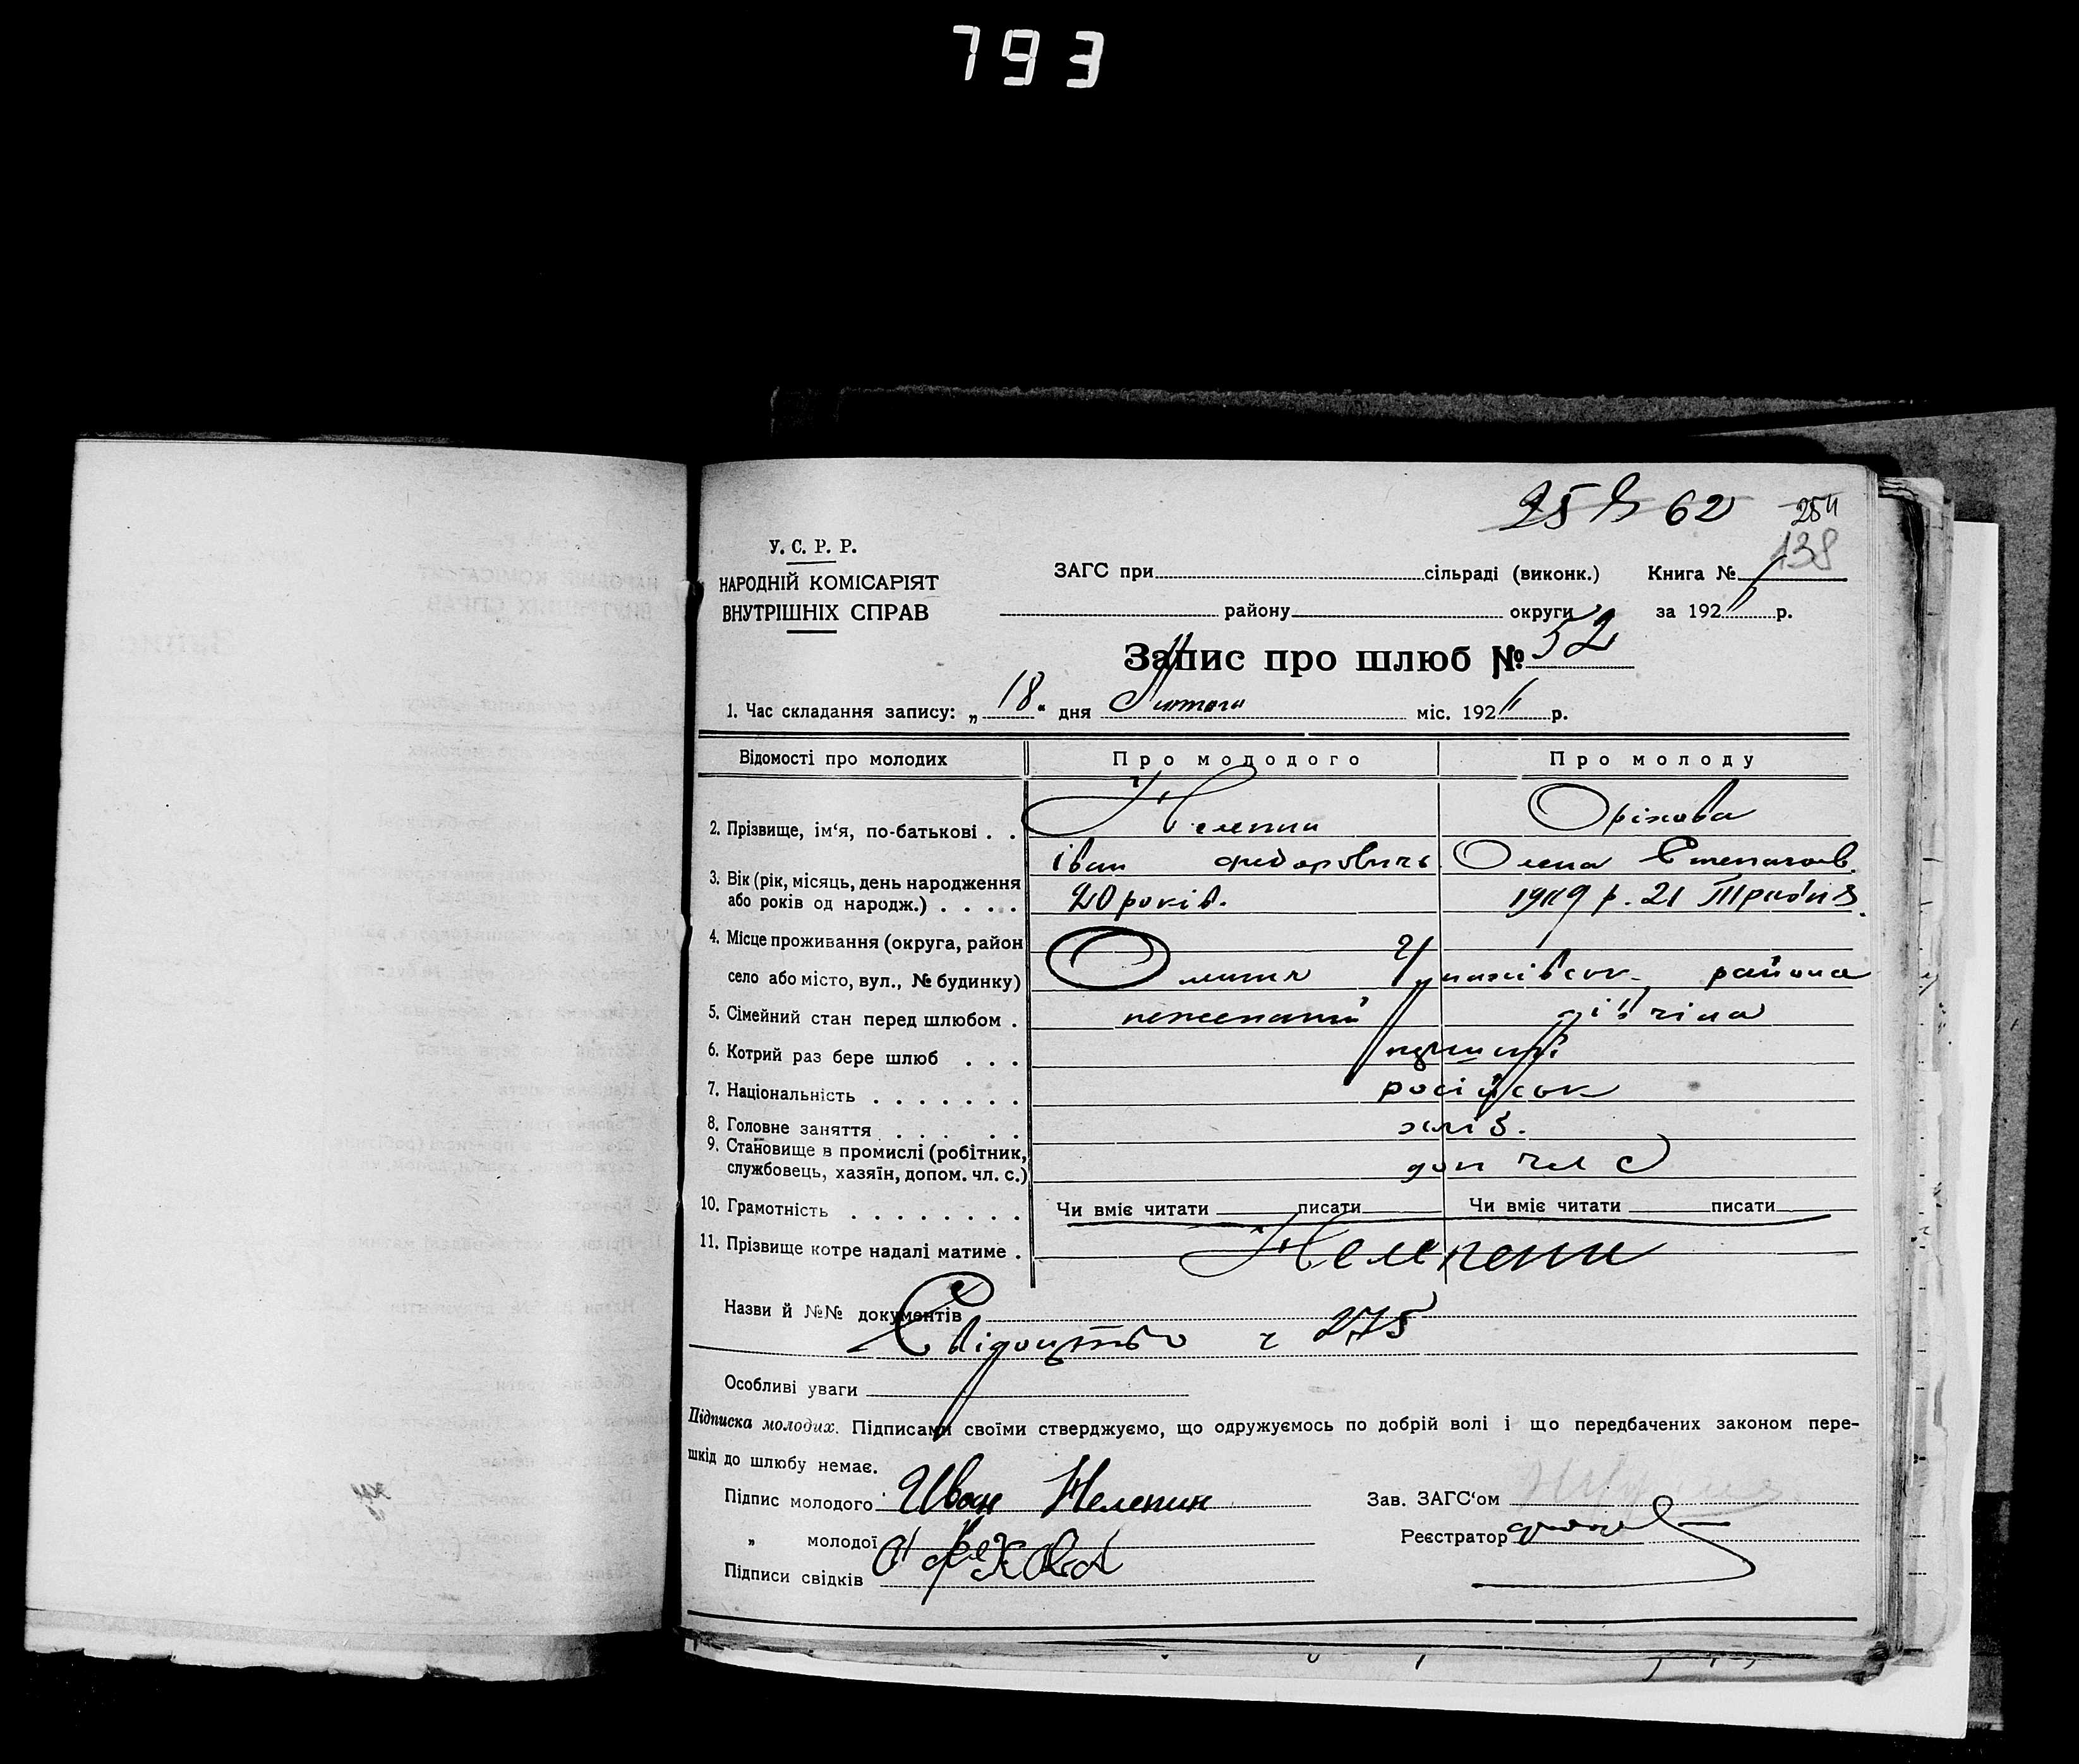 793
62 254
138
У. С. Р. Р.
НАРОДНІЙ КОМІСАРІЯТ
ВНУТРІШНІХ СПРАВ
ЗАГС при сільраді (виконк.) Книга №
району округи за 192 р.
Запис про шлюб № 52
1. Час складання запису: „ 18 “ дня Лютого міс. 192 р.
Відомості про молодих Про молодого Про молоду
2. Прізвище, ім‘я, по-батькові . . Нелепин Оріхова
іван федорович Олена Степанов.
3. Вік (рік, місяць, день народження
або років од народж.) . . . . 20 років. 1909 р. 21 Травня
4. Місце проживання (округа, район
село або місто, вул., № будинку) району
5. Сімейний стан перед шлюбом . неженатий дівчина
6. Котрий раз бере шлюб . . . перший
7. Національність . . . . . . . російськ
8. Головне заняття . . . . . хліб.
9. Становище в промислі (робітник,
службовець, хазяїн, допом. чл. с.) доп чл с
10. Грамотність . . . . . . . . Чи вміє читати писати Чи вміє читати писати
11. Прізвище котре надалі матиме . Нелепени
Назви й №№ документів
Свідоцтво ч 275
Особливі уваги
Підписка молодих. Підписами своїми стверджуємо, що одружуємось по добрій волі і що передбачених законом пере-
шкід до шлюбу немає.
Підпис молодого Иван Нелепин Зав. ЗАГС‘ом
„ молодої Реєстратор
Підписи свідків